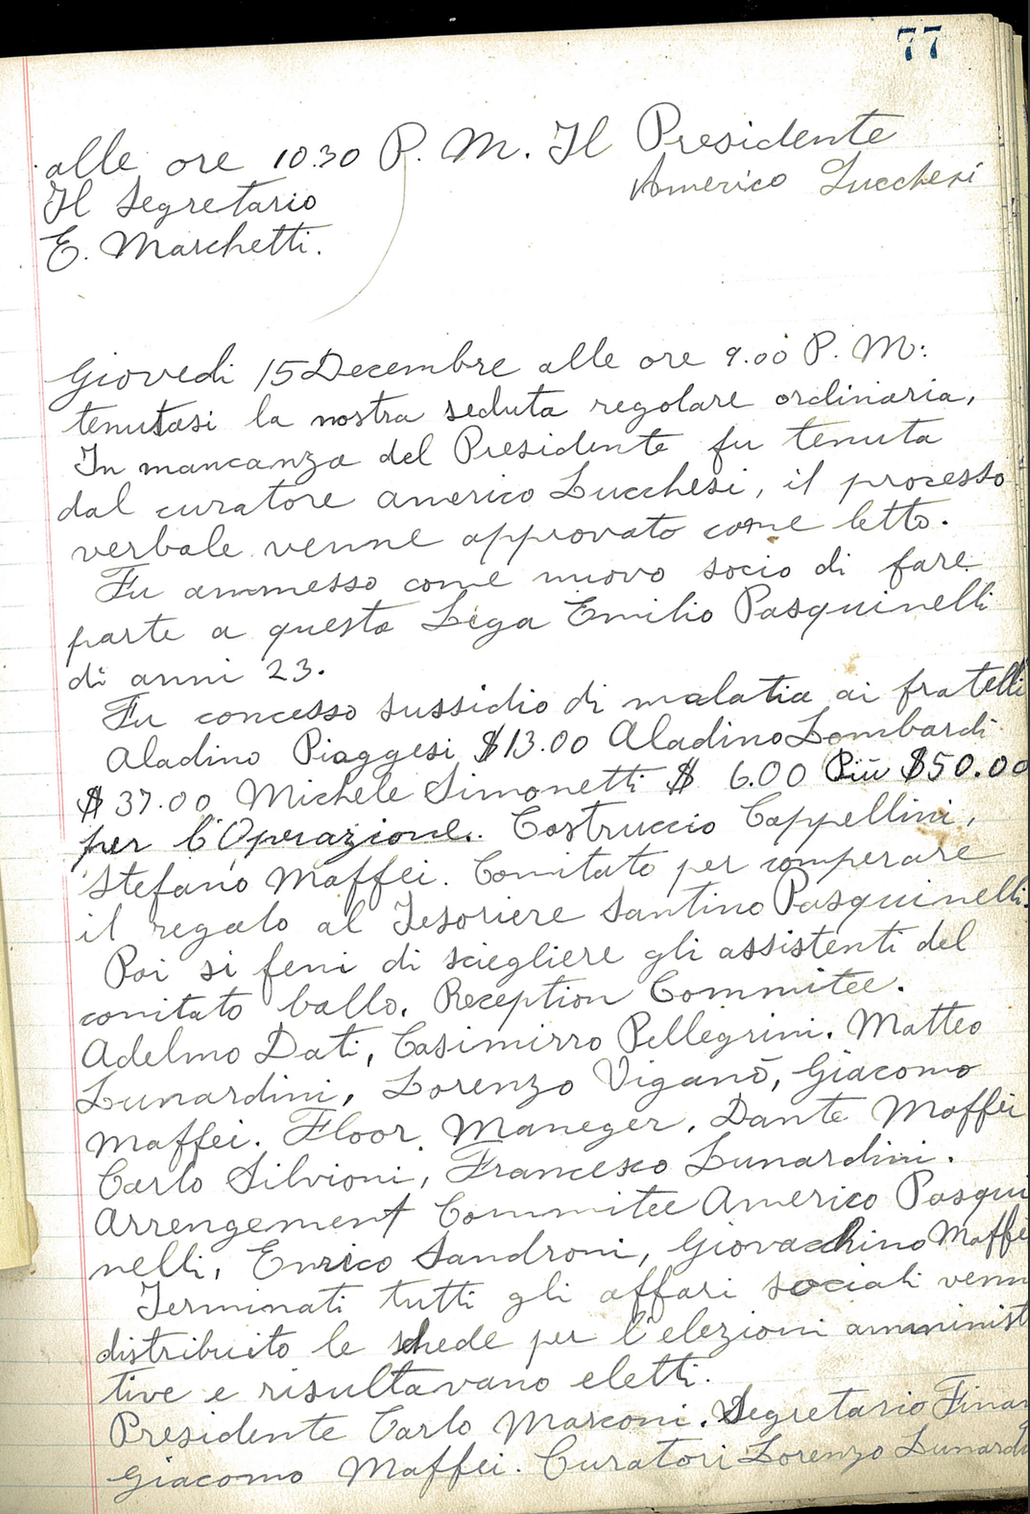 77
alle ore 10.30 P. M. Il Presidente
Americo Lucchesi
Il Segretario
E. Marchetti.
Giovedi 15 Decembre alle ore 9.00 P. M:
tenutasi la nostra seduta regolare ordinaria,
In mancanza del Presidente fu tenuta
dal curatore Americo Lucchesi, il processo
verbale venne approvato come letto.
Fu ammesso come nuovo socio di fare
parte a questa Lega Emilio Pasquinelli
di anni 23.
Fu concesso sussidio di malatia ai fratelli
Aladino Piaggesi $13.00 Aladino Lombardi
$37.00 Michele Simonetti $ 6.00 Più $50.00
per l'Operazione. Castruccio Cappellini,
Stefano Maffei. Comitato per comperare
il regalo al Tesoriere Santino Pasquinelli.
Poi si feni di sciegliere gli assistenti del
comitato ballo. Reception Commitee.
Adelmo Dati, Casimirro Pellegrini. Matteo
Lunardini, Lorenzo Viganò, Giacomo
Maffei. Floor Maneger. Dante Maffei
Carlo Silvioni, Francesco Lunardini.
Arrengement Commitee Americo Pasqui
nelli, Enrico Sandroni, Giovachino Maffe
Terminati tutti gli affari sociali venn
distribuito le schede per l'elezioni amminist
tive e risultavano eletti.
Presidente Carlo Marconi. Segretario Finan
Giacomo Maffei. Curatori Lorenzo Lunardi